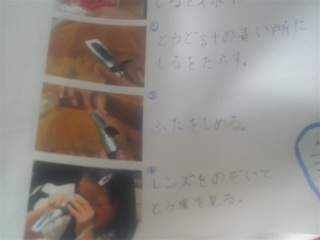 ②
とうど計の青い所に
しるをたらす。
③
ふたをしめる。
④
レンズをのぞいて
とう度を見る。